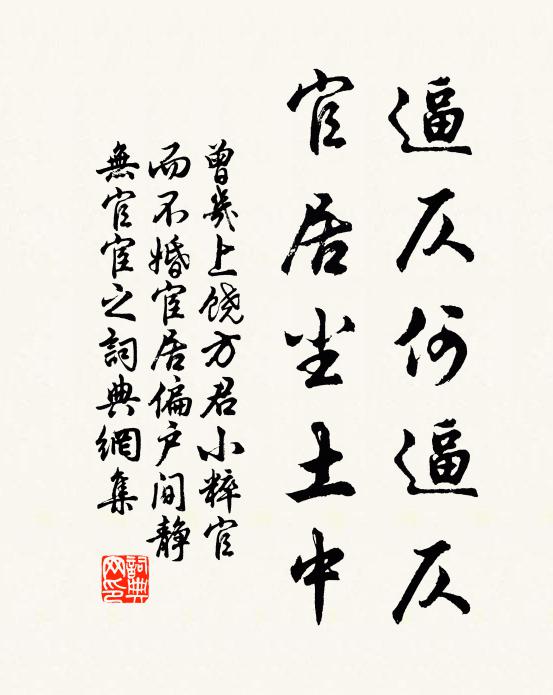 逼仄何逼仄
官居尘土中
曾幾上饶方君小粹官
而不婚宦居偏户间静
無官宦之詞典網集
詞典
网印